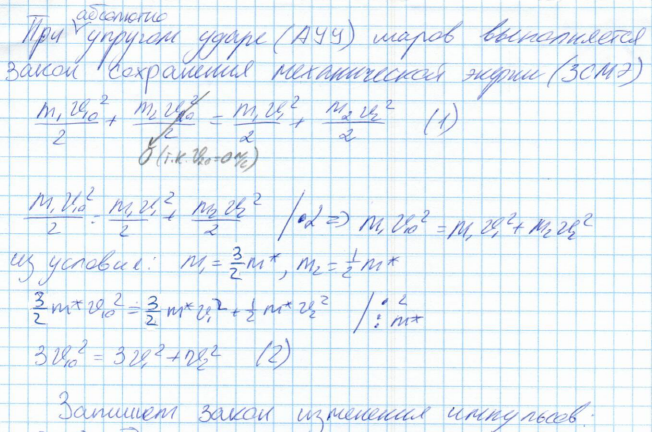 абсолютно
При упругом ударе (АУУ) шаров выполняется
закон сохранения механической энергии (ЗСМЭ)
m₁υ₁₀²/2 + m₂υ₂₀²/2 = m₁υ₁²/2 + m₂υ₂²/2 (1)
0 (т.к. υ₂₀=0 м/с)
m₁υ₁₀²/2 = m₁υ₁²/2 + m₂υ₂²/2 /·2 ⇒ m₁υ₁₀² = m₁υ₁² + m₂υ₂²
из условия: m₁ = 3/2 m*, m₂ = 1/2 m*
3/2 m*υ₁₀² = 3/2 m*υ₁² + 1/2 m*υ₂² /·2 :m*
3υ₁₀² = 3υ₁² + υ₂² (2)
Запишем закон изменения импульсов: